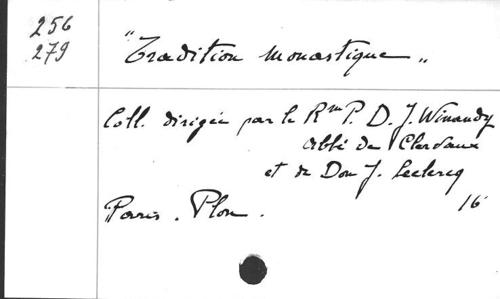 256
279
"Tradition Monastique"
Coll. dirigée par le Rm P. D. J. Winandy
abbé de Clervaux
et de Dom J. Leclercq
Paris. Plon.
16